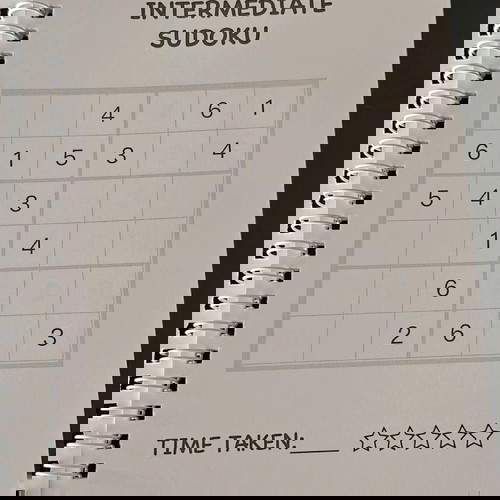 INTERMEDIATE
SUDOKU
4 6 1
6 1 5 3 4
5 4 3
1 4
6
3 2 6
TIME TAKEN:____